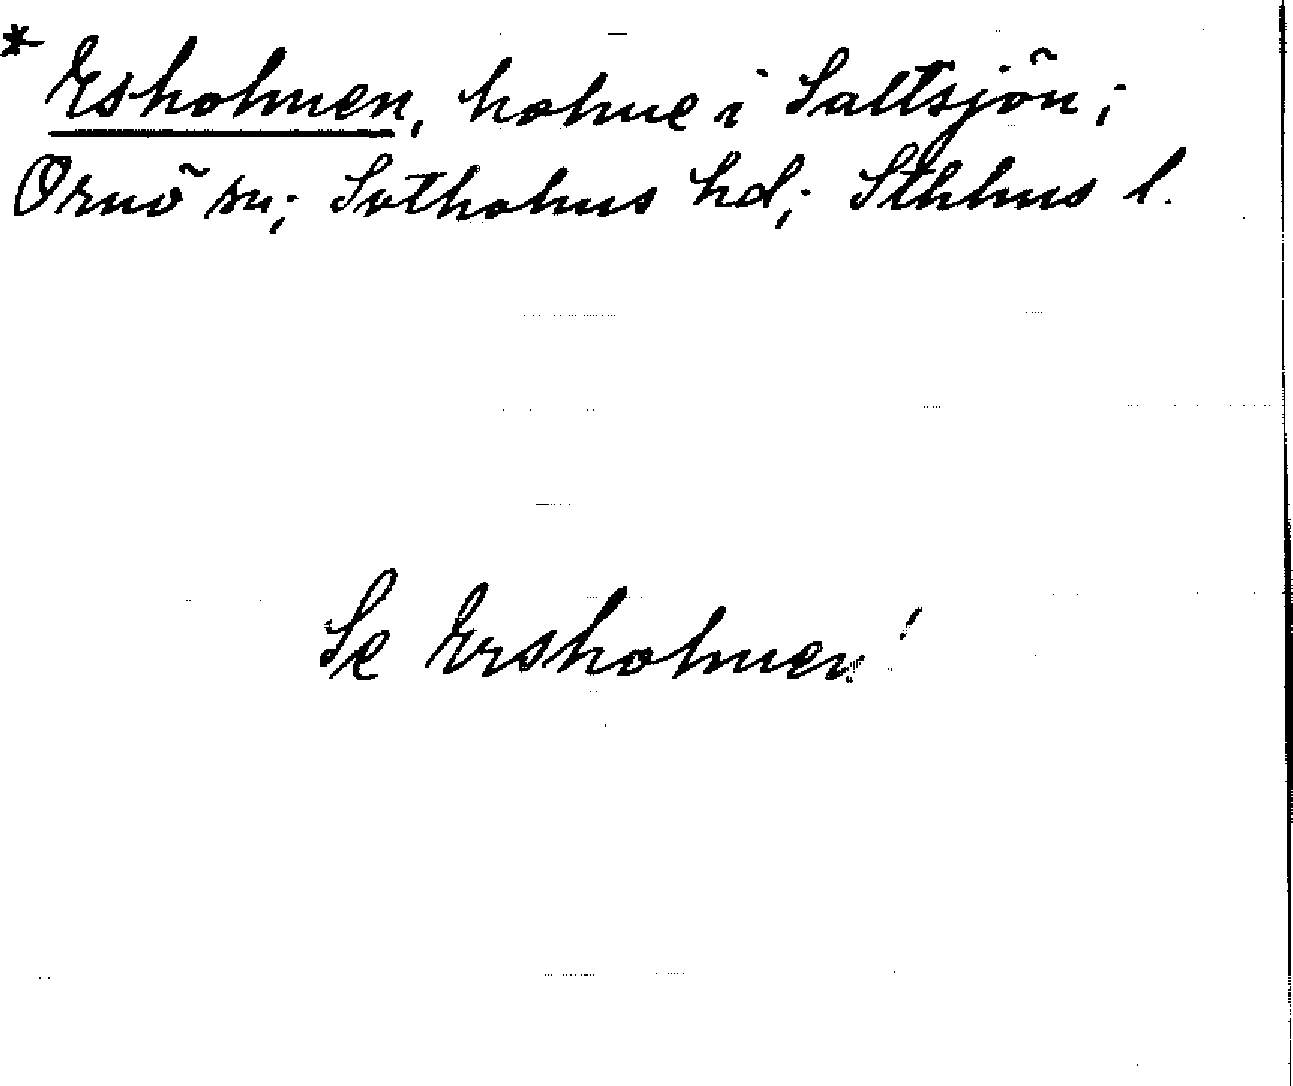 * Esholmen, holme i Saltsjön;
Ornö sn; Sotholms hd; Sthlms l.
Se Ersholmen!